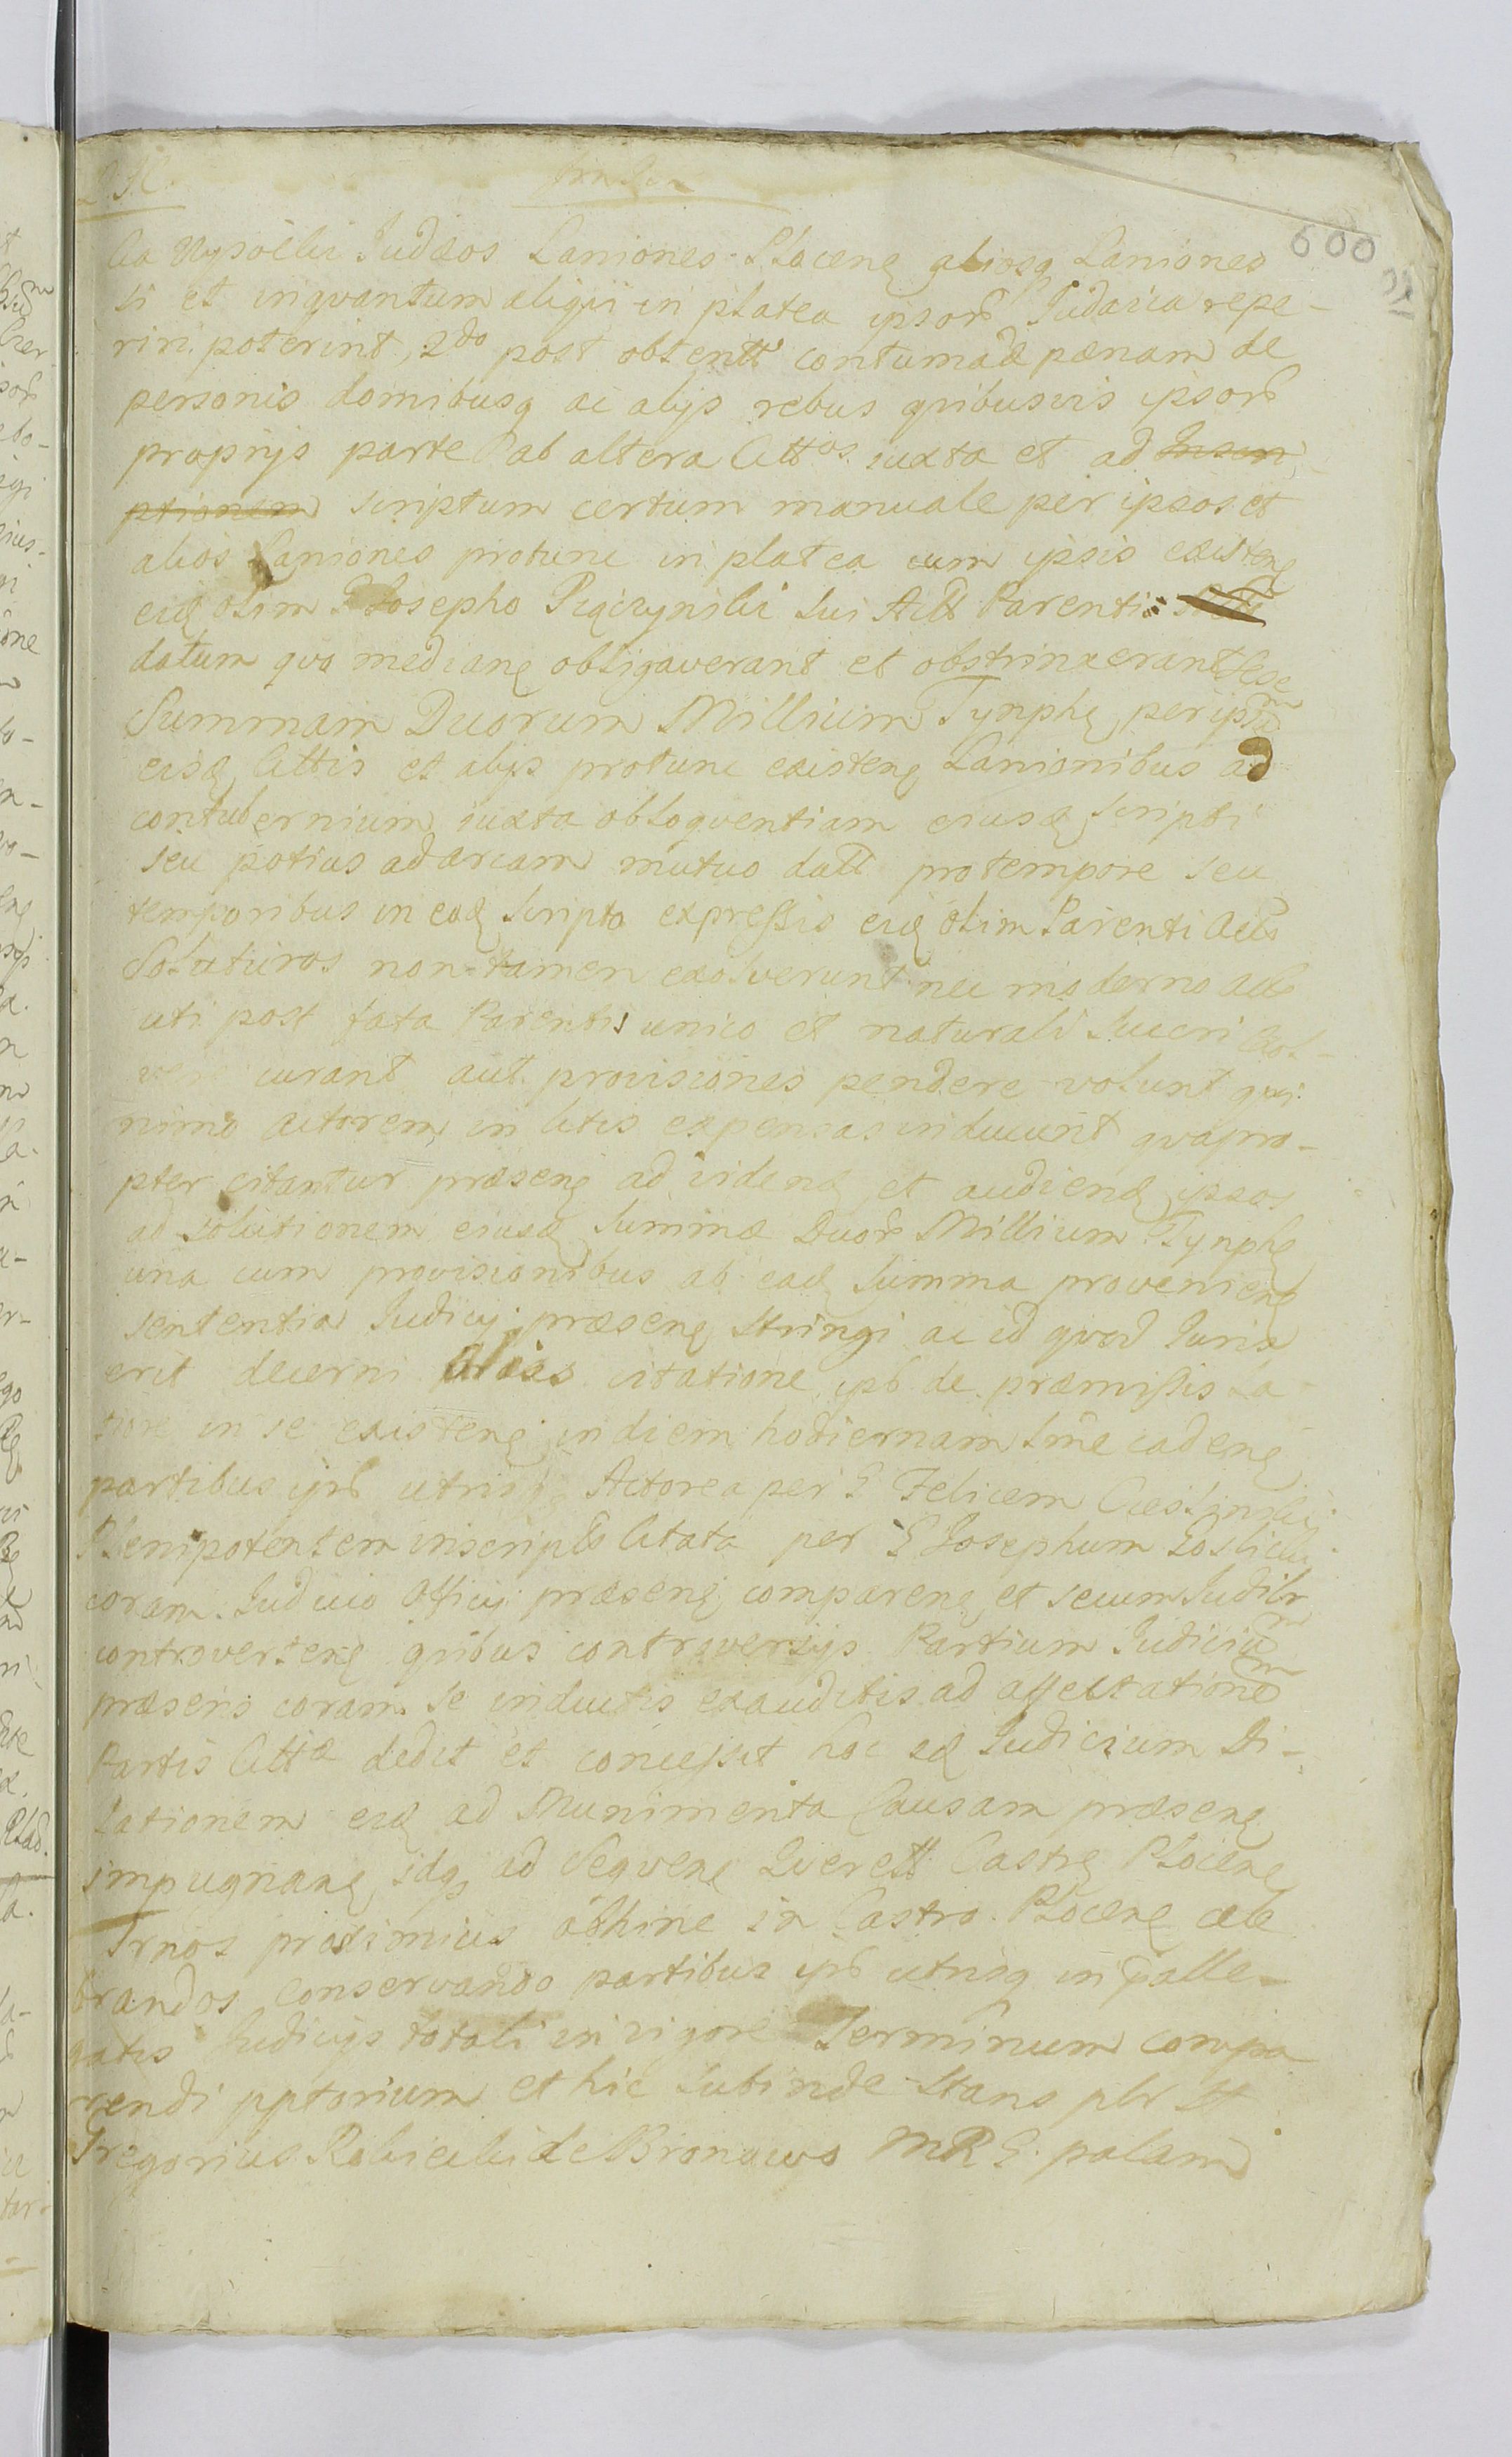 600
Nysoëlii Judæos Laniones Plocenę aliosq Laniones
si et inqvantum aliqvi in platea ipsorū Judaica repe-
riri poterint, 2do post obtentā contumaciæ pœnam de
personis domibusq ac alijs rebus qvibusvis ipsorū
proprijs parte ab altera Cittos iuxta et ad Inscri-
ptionem scriptum certum manuale per ipsos et
alios Laniones protunc in platea cum ipsis existenę
eidę olim G Josepho sui Actt Parenti
datum qvo mediane obligaverant et obstrinxerant sese
Summam Duorum Millium Tynphę per ipsū
eisdę Cittis et alijs protunc existenę Lanionibus ad
contubernium iuxta obloqventiam eiusdę scripti
seu potius ad arcam mutuo datt pro tempore seu
temporibus in eodę scripto expressis eidę olim Parenti Actt
Soluturos non tamen exolverunt nec moderno Actt
uti post fata Parentis unico et naturali Succri exol-
vere curant aut provisiones pendere volunt qvi
nimo Actorem in litis expensas inducunt qvapro-
pter citantur præsenę ad videndę et audiendę ipsos
ad solutionem eiusdę summæ Duorū Millium Tynphę
una cum provisionibus ab eadę summa provenienę
sententia Judicij præsenę stringi ac id qvod Juris
erit decerni Alias citatione ipsā de præmissis La-
tiore in se existenę in diem hodiernam sme cadenę
partibus ipsis utrisq Actorea per G Felicem
Plenipotentem inscriptū Citata per G Josephum
coram Judicio Officij præsenę comparenę et secum Judilr
controvertenę qvibus controversijs Partium Judicium
præsens coram se inductis exauditis ad affectationem
Partis Cittæ dedit et concessit hoc idę Judicium Di-
lationem eidę ad Munimenta Causam præsenę
impugnanę idq ad seqvenę Qverett Castrę Plocenę
Trnos proximius abhinc in Castro Plocenę cele
brandos conservando partibus ipsis utrisq in palle-
gatis Judicijs totali in vigore Terminum compa
rendi pptorium et hic subinde stans pbr
Gregorius de Bronowo MRG palam